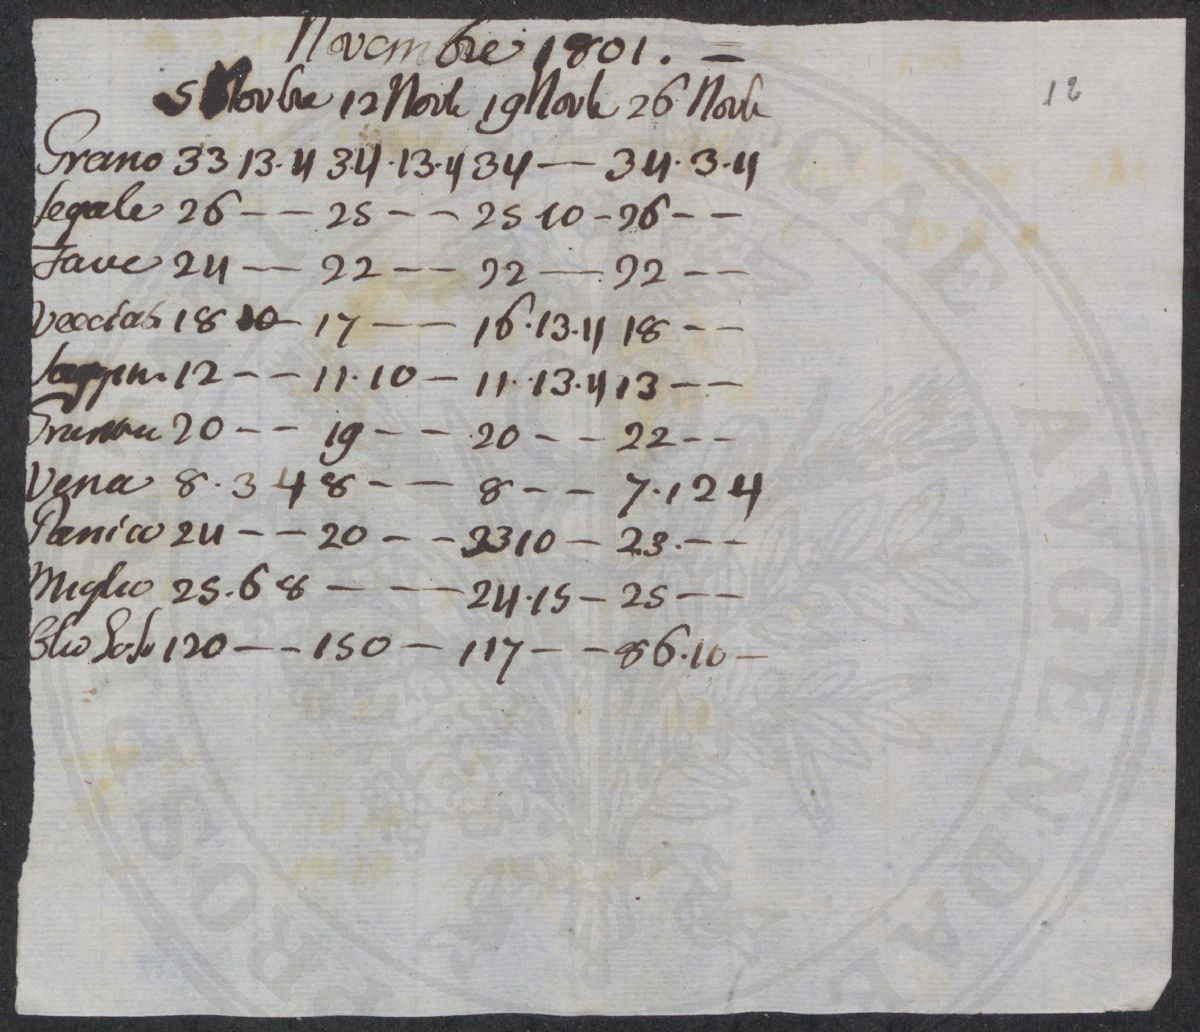 Novembre 1801. =
12
5 Novbre 12 Novb 19 Novb 26 Novb
Grano 33 13.4 34.13.4 34 — 34.3.4
Segale 26 — — 25 — — 25 10 — 26 — —
Fave 24 — — 22 — — 22 — 22 — —
Veccias 18 10 — 17 — — 16.13.4 18 — —
12 — — 11.10 — 11.13.4 13 — —
20 — — 19 — — 20 — — 22 — —
Vena 8.3 4 8 — — 8 — — 7.12 4
Panico 24 — — 20 — — 23 10 — 23. — —
Miglio 25.6 8 — — — 24.15 — 25 — —
120 — — 150 — 117 — — 86.10 —